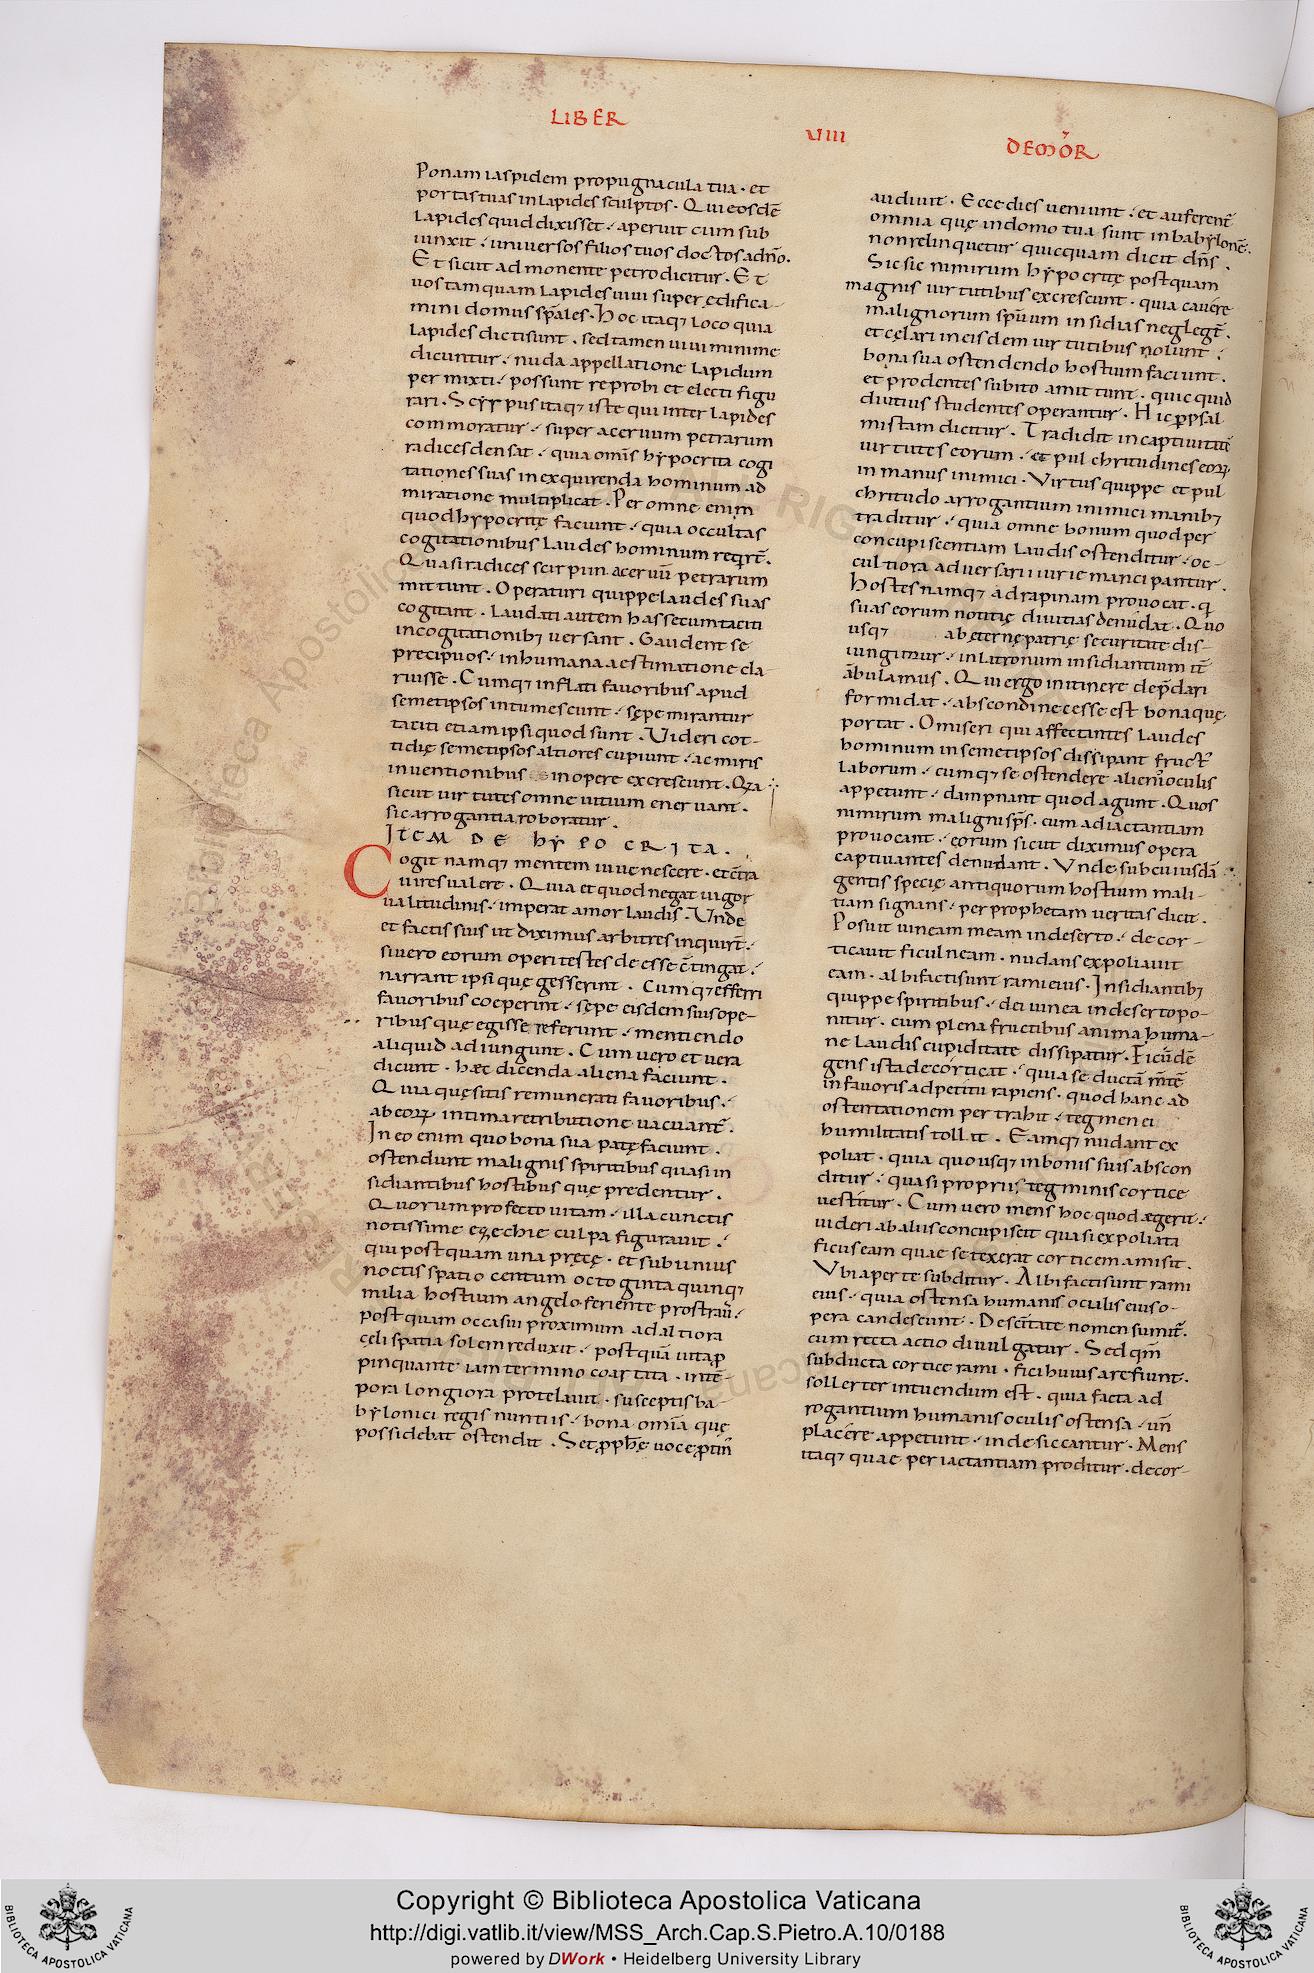 LIBER
VIIII
DEMOR̄
Ponam iaspidem propugnacula tua · et
portas tuas in lapides sculptos · Qui eosdē
lapides quid dixisset · aperuit cum sub
iunxit · universos filios tuos doctos a dn̄o ·
Et sicut admonente petro dicitur · Et
vos tamquam lapides vivi superędifica-
mini domus sp̄ales · Hoc itaq; loco quia
lapides dicti sunt · sed tamen vivi minime
dicuntur · nuda appellatione lapidum
permixti · possunt reprobi et electi figu
rari · Scyrpus itaq; iste qui inter lapides
commoratur · super acervum petrarum
radices densat · quia omīs hypocrita cogi
tationes suas in exquirenda hominum ad
miratione multiplicat · Per omne enim
quod hypocritę faciunt · quia occultas
cogitationibus laudes hominum reqrt̄ ·
Quasi radices scirpi in acervū petrarum
mittunt · Operaturi quippe laudes suas
cogitant · Laudati autem has secum taciti
in cogitationib; versant · Gaudent se
precipuos · in humana aestimatione cla-
ruisse · Cumq; inflati favoribus apud
semetipsos intumescunt · sępe mirantur
taciti etiam ipsi quod sunt · Videri cot-
tidię semetipsos altiores cupiunt · ac miris
inventionibus in opere excrescunt · Qia
sicut virtutes omne vitium enervant ·
sic arrogantia roboratur ·
ITEM DE HYPOCRITA ·
Cogit namq; mentem iuvenescere · et cōtra
vires valere · Quia et quod negat vigor
valitudinis · imperat amor laudis · Unde
et factis suis ut diximus arbitres inquirt̄ ·
si vero eorum operi testes deesse cōtingat ·
narrant ipsi quę gesserint · Cumq; efferri
favoribus coeperint · sępe eisdem suis ope-
ribus quę egisse referunt · mentiendo
aliquid adiungunt · Cum vero et vera
dicunt · hæc dicenda aliena faciunt ·
Quia quęsitis remunerati favoribus ·
ab eorꝝ intima retributione vacuant̄ ·
In eo enim quo bona sua patęfaciunt ·
ostendunt malignis spiritibus quasi in
sidiantibus hostibus quę predentur ·
Quorum profecto vitam · illa cunctis
notissime ezechie culpa figuravit ·
qui postquam una pręcę · et sub unius
noctis spatio centum octoginta quinq;
milia hostium angelo feriente prostrav̄ ·
postquam occasui proximum ad altiora
cęli spatia solem reduxit · postquā vita ꝓ
pinquante iam termino coartita · intē-
pora longiora protelavit · susceptis ba-
bylonici regis nuntiis · bona omīa quę
possidebat ostendit · Set ꝓphę voce ꝓtin̄
audivit · Ecce dies veniunt · et auferent̄
omnia quę in domo tua sunt in babylonē ·
non relinquetur quicquam dicit dn̄s ·
Sic sic nimirum hypocritę postquam
magnis virtutibus excrescunt · quia cavere
malignorum sp̄uum insidias neglegt̄ ·
et cęlari in eisdem virtutibus nolunt ·
bona sua ostendendo hostium faciunt ·
et prodentes subito amittunt · quicquid
diutius studentes operantur · Hic ꝑ psal
mistam dicitur · Tradidit in captivitatē
virtutes eorum · et pulchritudines eorꝝ
in manus inimici · Virtus quippe et pul
chritudo arrogantium inimici manib;
traditur · quia omne bonum quod per
concupiscentiam laudis ostenditur · oc-
cultiora adversarii iurie mancipantur ·
Hostes namq; ad rapinam provocat · q̄
suas eorum notitię divitias denudat · Quo
usq; ab ęternę patrię securitate dis-
iungimur · in latronum insidiantium it̄
ābulamus · Qui ergo in itinere dep̄dari
formidat · abscondi necesse est bona quę
portat · O miseri qui affectantes laudes
hominum in semetipsos dissipant fruct̄
laborum · cumq; se ostendere alienis oculis
appetunt · dampnant quod agunt · Quos
nimirum maligni sps̄ · cum ad iactantiam
provocant · eorum sicut diximus opera
captivantes denudant · Unde sub cuiusdā
gentis specię antiquorum hostium mali-
tiam signans · per prophetam veritas dicit ·
Posuit vineam meam in deserto · decor-
ticavit ficulneam · nudans expoliavit
eam · albi facti sunt rami eius · Insidiantib;
quippe spiritibus · dei vinea in deserto po-
nitur · cum plena fructibus anima huma-
ne laudis cupiditate dissipatur · Ficū dē
gens ista decorticat · quia seductā mt̄ē
in favoris adpetitu rapiens · quod hanc ad
ostentationem pertrahit · tegmen ei
humilitatis tollit · Eamq; nudant ex
poliat · quia quousq; in bonis suis abscon
ditur · quasi propriis tegminis cortice
vestitur · Cum vero mens hoc quod ægerit ·
videri ab aliis concupiscit quasi expoliata
ficus eam quae se texerat corticem amisit ·
Ubi aperte subditur · Albi facti sunt rami
eius · quia ostensa humanis oculis eius o-
pera candescunt · De scītate nomen sumit̄ ·
cum recta actio divulgatur · Sed qm̄
subducta cortice rami · fici huius arefiunt ·
sollerter intuendum est · quia facta ad
rogantium humanis oculis ostensa · un̄
placere appetunt · inde siccantur · Mens
itaq; quae per iactantiam proditur · decor-
Copyright © Biblioteca Apostolica Vaticana
http://digi.vatlib.it/view/MSS_Arch.Cap.S.Pietro.A.10/0188
powered by DWork • Heidelberg University Library
BIBLIOTECA APOSTOLICA VATICANA
BIBLIOTECA APOSTOLICA VATICANA